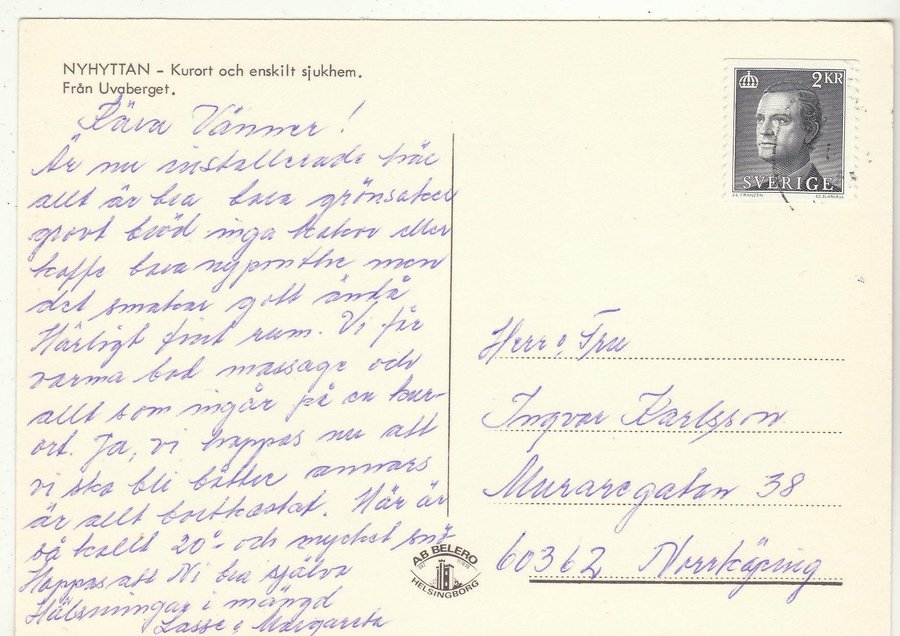 NYHYTTAN – Kurort och enskilt sjukhem.
Från Uvaberget.
Kära Vänner!
Är nu installerade här
allt är bra bara grönsaker
grovt bröd inga kakor eller
kaffe bara nyponthe men
det smakar gott ändå
Härligt fint rum. Vi får
varma bad massage och
allt som ingår på en kur-
ort. Ja, vi hoppas nu att
vi ska bli bättre annars
är allt bortkastat. Här är
så kallt 20°- och mycket snö
Hoppas att Ni bra själva
Hälsningar i mängd
Lasse o Margareta
2 KR
SVERIGE
Herr o Fru
Ingvar Karlsson
Muraregatan 38
60362 Norrköping
AB BELERO
HELSINGBORG